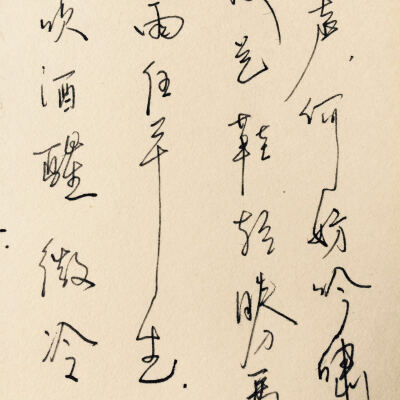 声，何妨吟啸
芒鞋轻胜马
雨任平生．
吹酒醒微冷